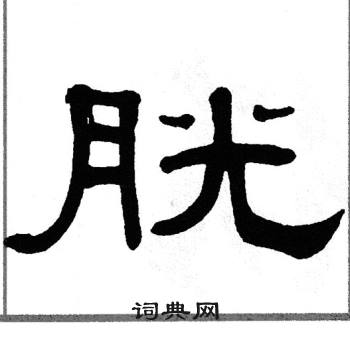 胱
词典网